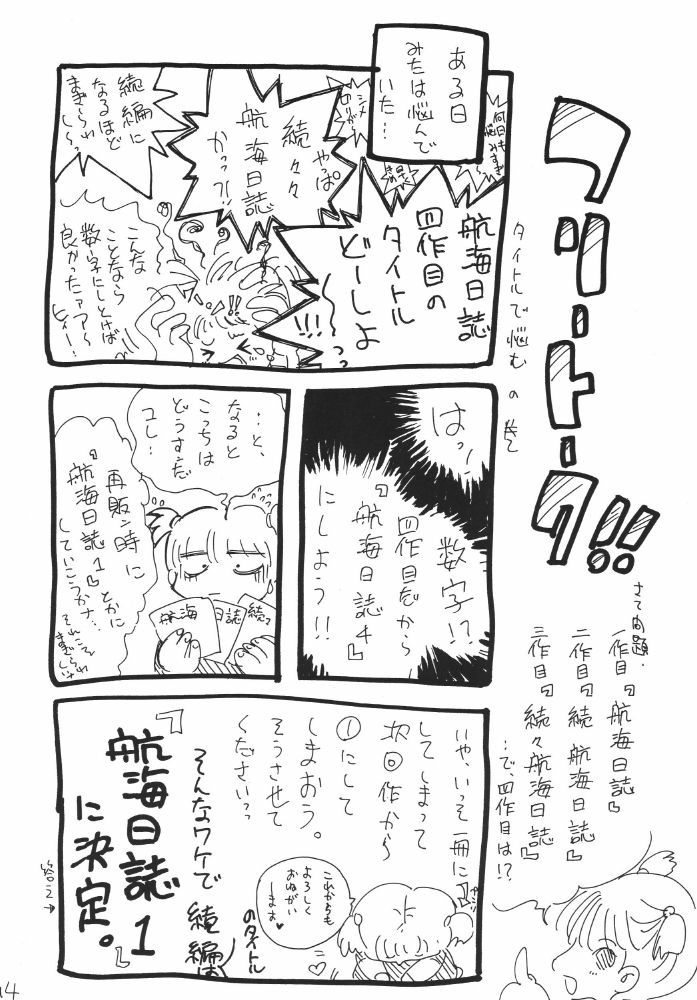 フリートーク!!
タイトルで悩むの巻
さて問題.
一作目『航海日誌』
二作目『続航海日誌』
三作目『続々航海日誌』
…で、四作目は!?
ある日
みたは悩んで
いた…
何日も
悩みすぎ
シメ
キリが
航海日誌
四作目の
タイトル
どーしよ
〜っっ
!!!
やっぱ
続々々
航海日誌
かっ?!
続編に
なるほど
まぎらわ
しい〜
こんな
ことなら
数字にしとけば
良かったァァ〜
ヒィー!
はっ!
数字!?
四作目だから
『航海日誌4』
にしよう!!
…と、
なると
こっちは
どうすんだ
コレ…
再販時に
『航海日誌1』とかに
していこうかナ…
それこそ
まぎらわしいナ
航海
日誌
続々
いや、いっそ一冊に
してしまって
次回作から
①にして
しまおう。
そうさせて
くださいっっ
そんなワケで続編は
のタイトル
『航海日誌1』
に決定。
これからも
よろしく
おねがい
しまーす♥
答え→
14